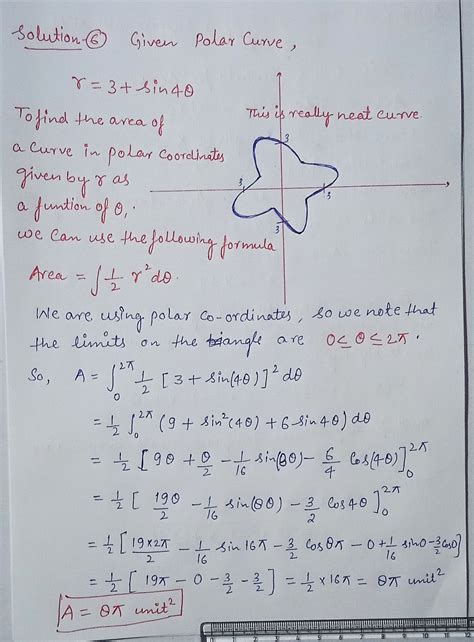 Solution-⑥ Given Polar Curve,
r = 3 + sin4θ
To find the area of
a curve in polar coordinates
given by r as
a funtion of θ,
we can use the following formula
Area = ∫ 1/2 r² dθ.
This is really neat curve.
3
3
3
3
We are using polar co-ordinates, so we note that
the limits on the triangle are 0 ≤ θ ≤ 2π.
So, A = ∫₀^2π 1/2 [3 + sin(4θ)]² dθ
= 1/2 ∫₀^2π (9 + sin²(4θ) + 6 sin4θ) dθ
= 1/2 [9θ + θ/2 - 1/16 sin(8θ) - 6/4 cos(4θ)]₀^2π
= 1/2 [19θ/2 - 1/16 sin(8θ) - 3/2 cos4θ]₀^2π
= 1/2 [19×2π/2 - 1/16 sin 16π - 3/2 cos8π - 0 + 1/16 sin0 - 3/2 cos0]
= 1/2 [19π - 0 - 3/2 - 3/2] = 1/2 × 16π = 8π unit²
A = 8π unit²